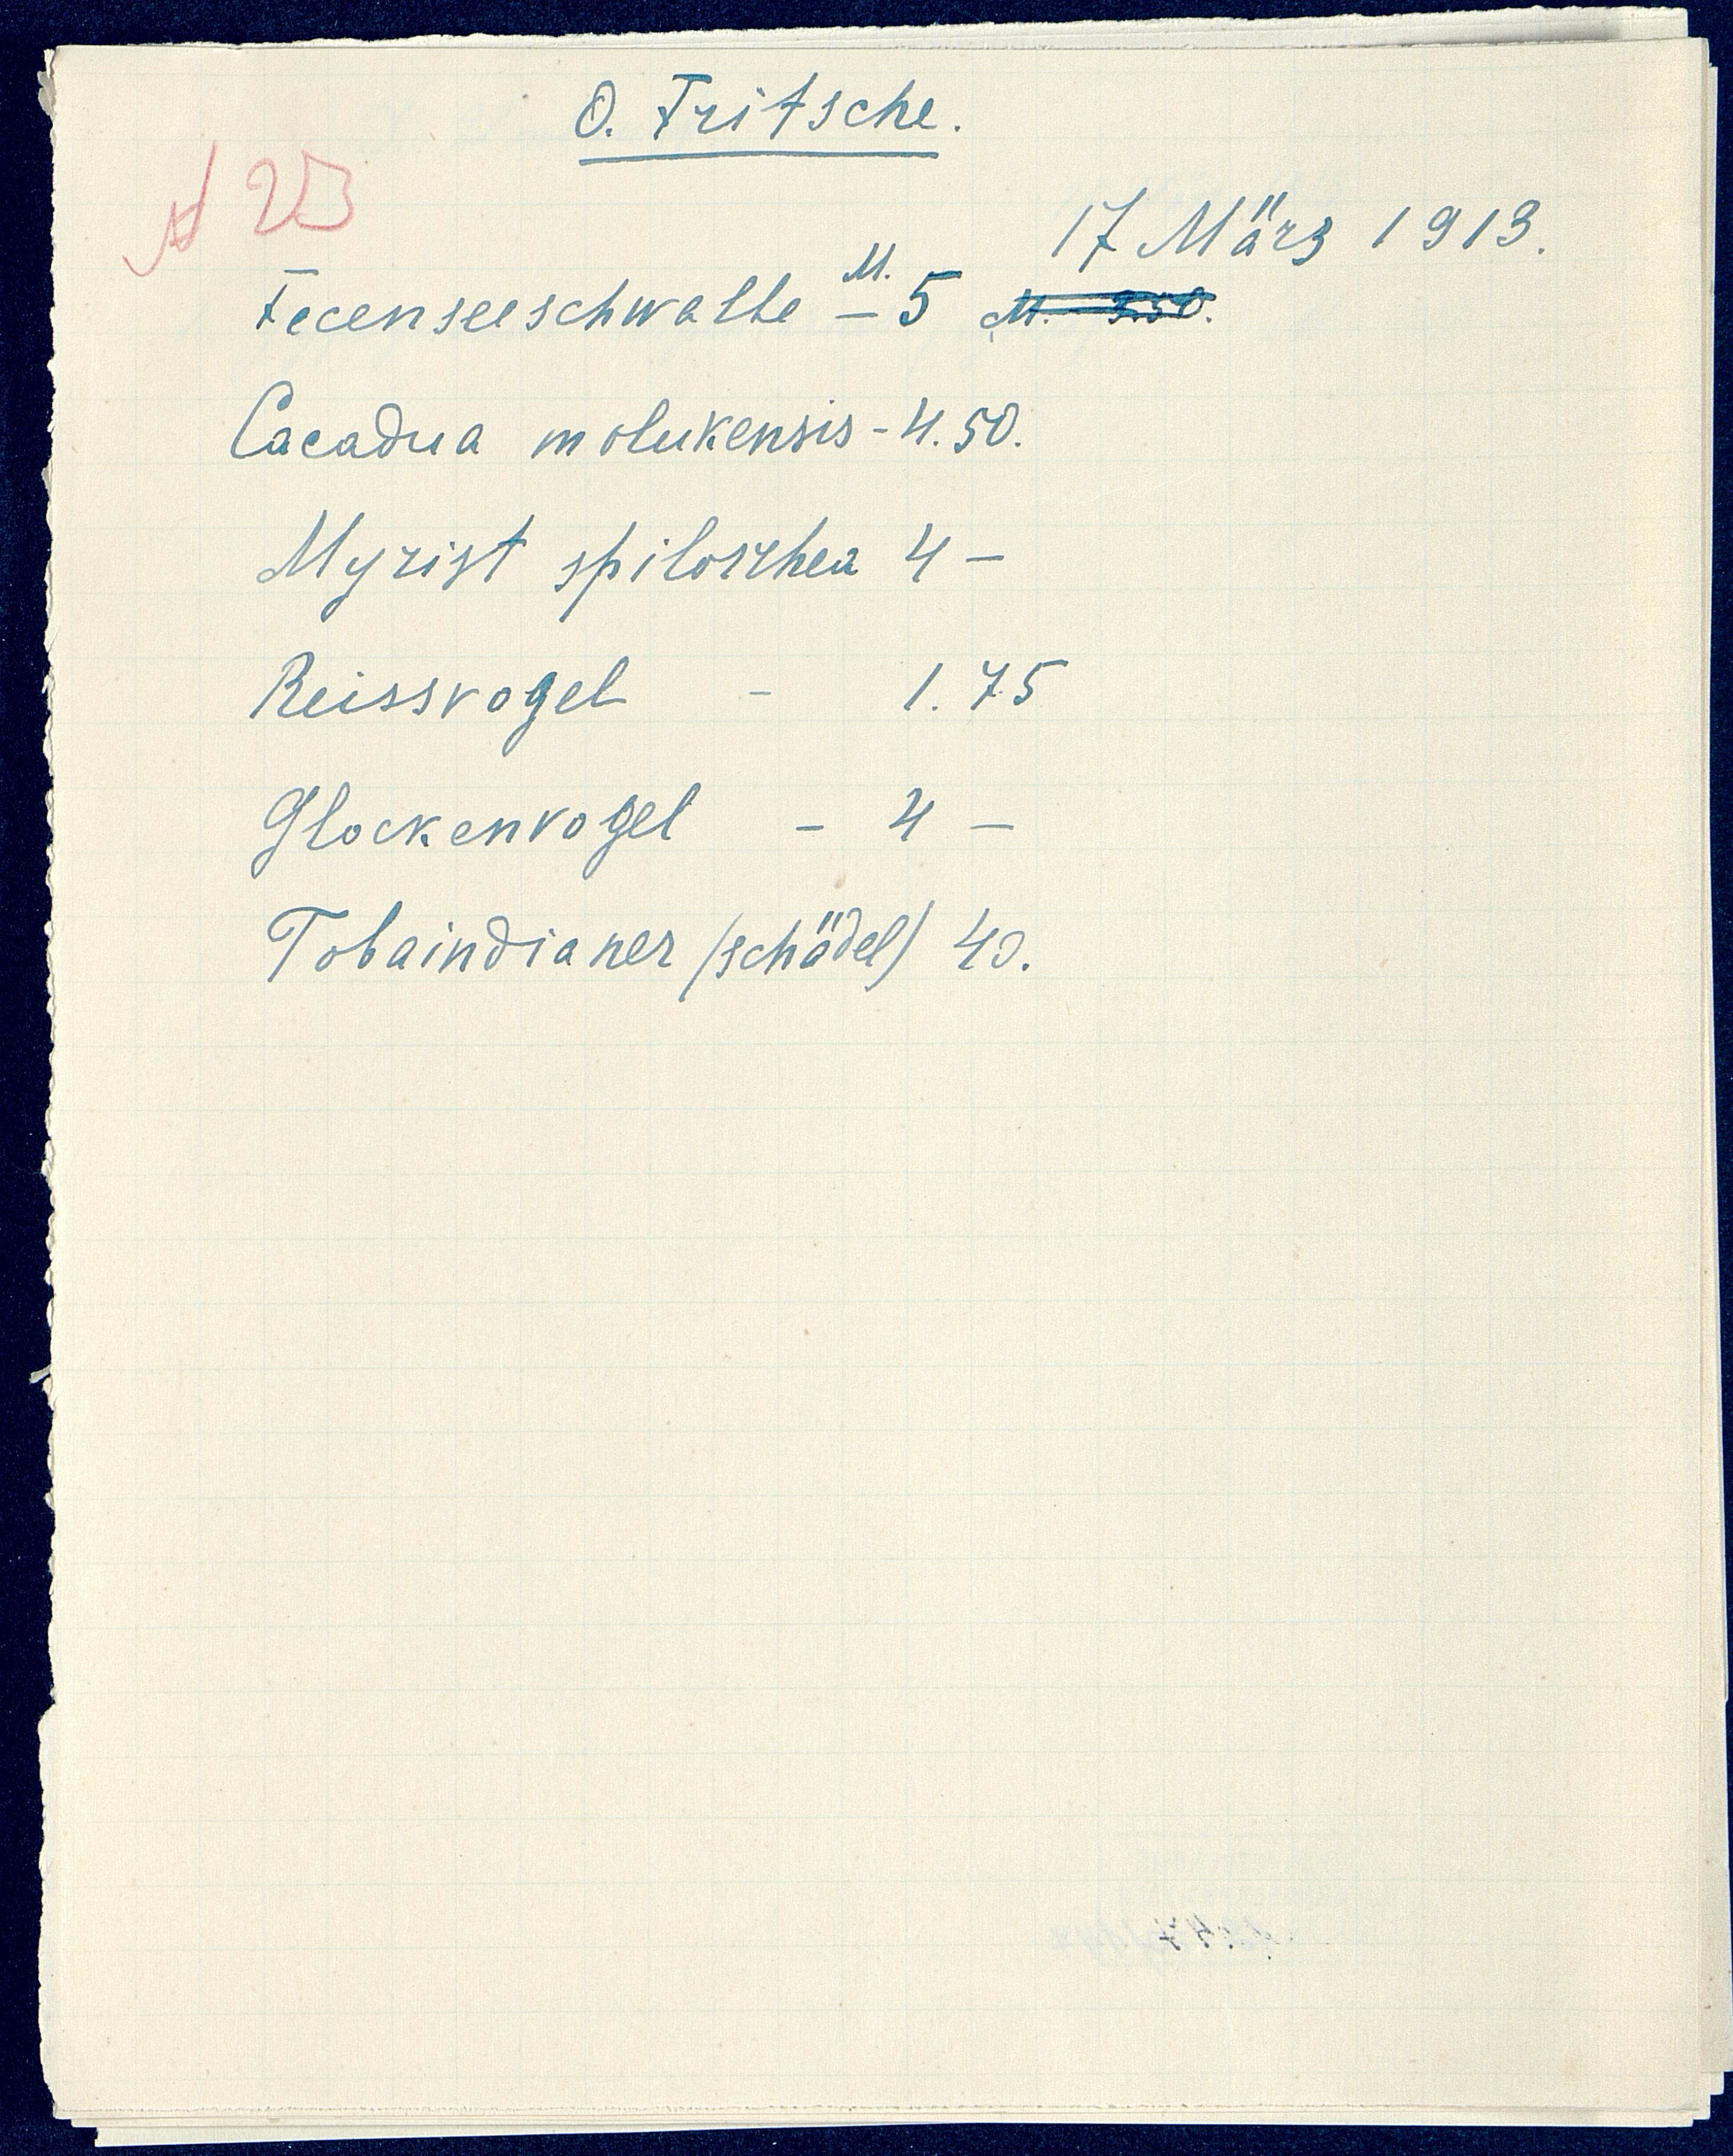 O. Fritsche.
17 März 1913.
Feenseeschwalbe – M. 5 M. 3.50.
Cacadua molukensis - 4.50.
Myrist spilorrhea 4 –
Reissvogel - 1.75
Glockenvogel – 4 –
Tobaindianer (schädel) 40.